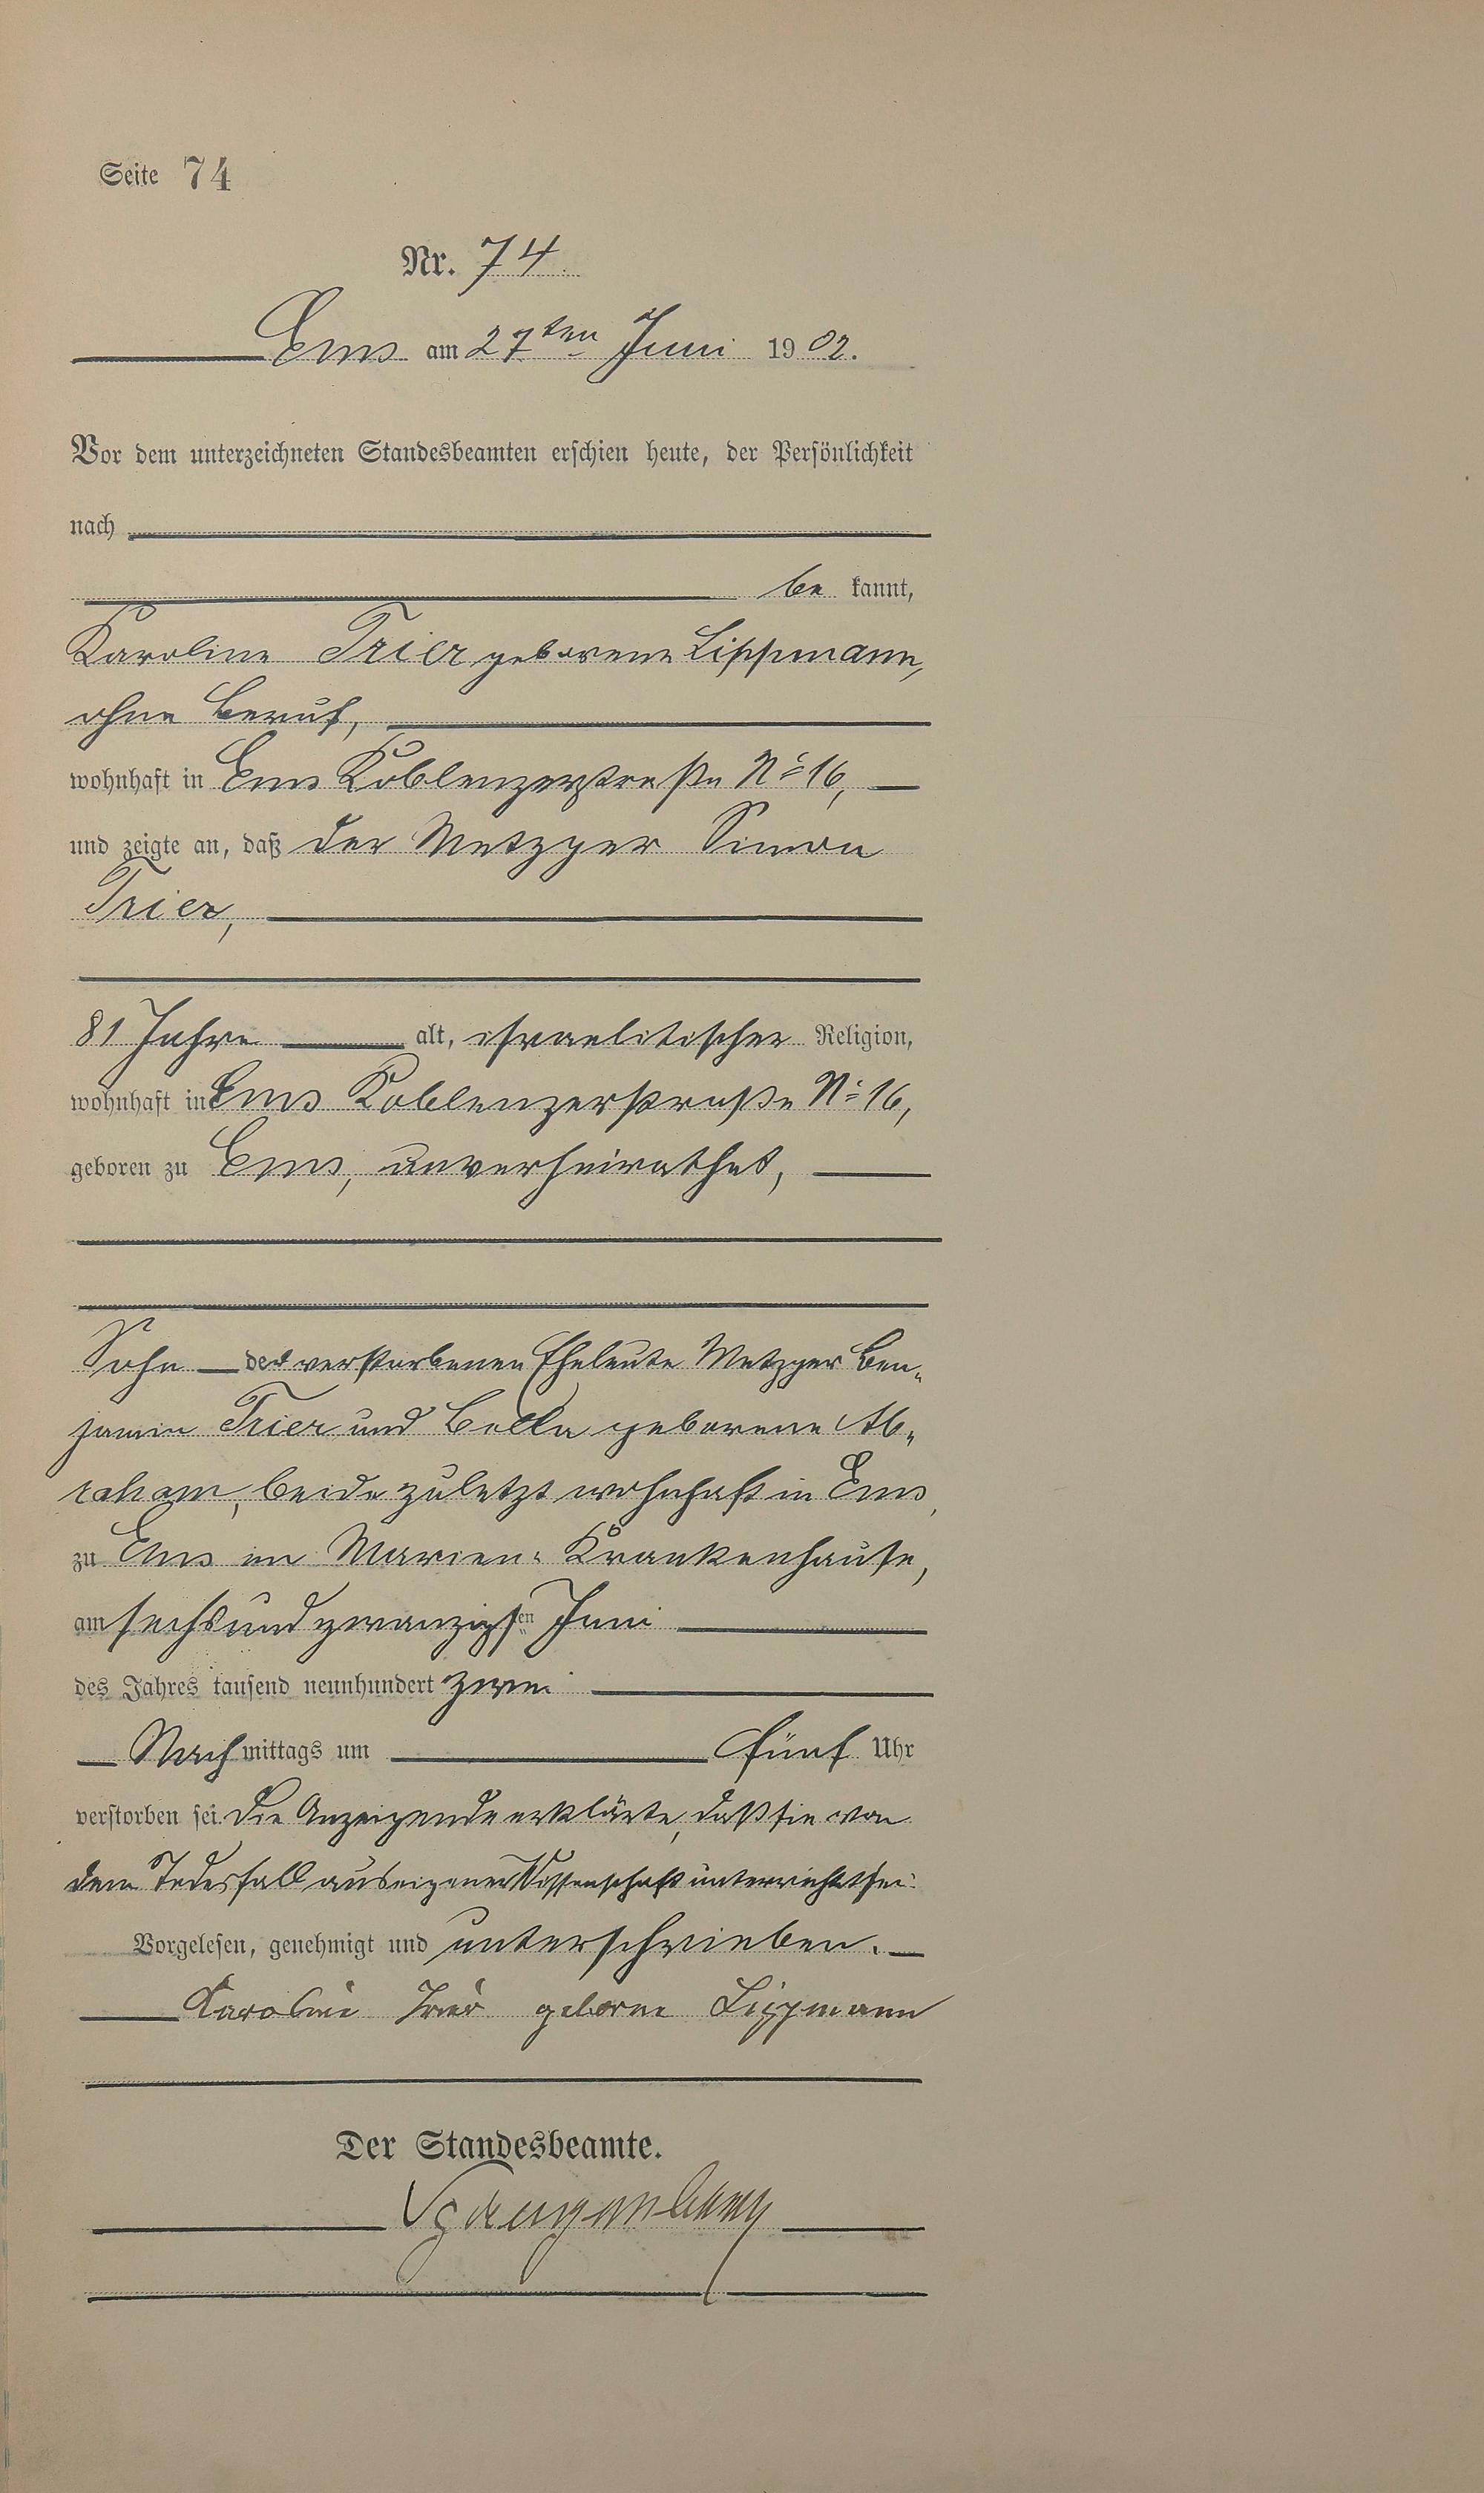 Seite 74
Nr. 74.
Ems am 27ten Juni 1902.
Vor dem unterzeichneten Standesbeamten erschien heute, der Persönlichkeit
nach
be kannt,
Karoline Trier geborene Lippmann,
ohne Beruf,
wohnhaft in Ems Koblenzerstraße No 16,
und zeigte an, daß der Metzger Simon
Trier,
81 Jahre alt, israelitischer Religion,
wohnhaft in Ems Koblenzerstraße No 16,
geboren zu Ems, unverheirathet,
Sohn der verstorbenen Eheleute Metzger Ben-
jamin Trier und Bella geborene Ab-
raham, beide zuletzt wohnhaft in Ems,
zu Ems im Marien-Krankenhause,
am sechsundzwanzigsten Juni
des Jahres tausend neunhundert zwei
Nachmittags um fünf Uhr
verstorben sei. Die Anzeigende erklärte, daß sie von
dem Todesfall aus eigener Wissenschaft unterrichtet sei.
Vorgelesen, genehmigt und unterschrieben.
Karoline Trier geborne Lippmann
Der Standesbeamte.